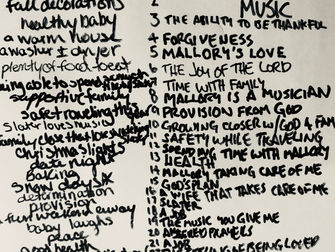 fall decorations
healthy baby
a warm house
a washer & dryer
plenty of food to eat
supportive family
safe traveling this
Slater loves music
family close that loves
christmas lights
date night
baking
snow day
determination
provision
baby laughs
peace
2 MUSIC
3 THE ABILITY TO BE THANKFUL
4 FORGIVENESS
5 MALLORY'S LOVE
6 THE JOY OF THE LORD
7 TIME WITH FAMILY
8 MALLORY IS A MUSICIAN
9 PROVISION FROM GOD
10 GROWING CLOSER W/ GOD & FAM
11 SAFETY WHILE TRAVELING
12 SPENDING TIME WITH MALLORY
13 HEALTH
14 MALLORY TAKING CARE OF ME
15 GODS PLAN
16 A WIFE THAT TAKES CARE OF ME
17 SLATER
18 JOY
19 THE MUSIC YOU GIVE ME
20 ANSWERED PRAYERS
21 A JOB
BEING LOVED